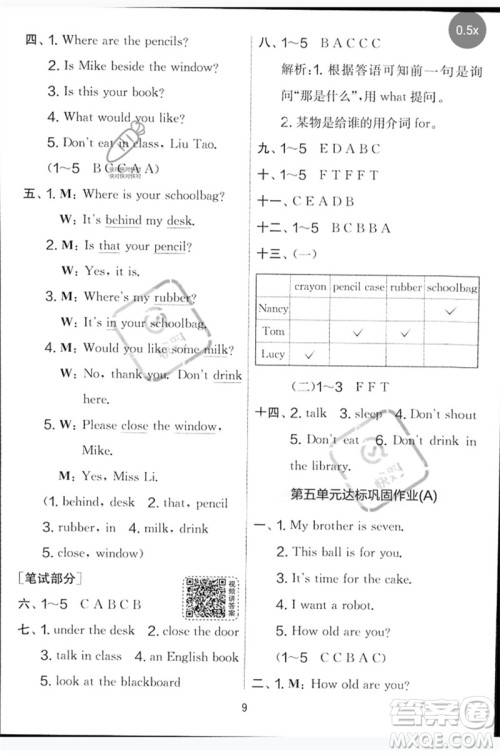 0.5x
四、1. Where are the pencils?
2. Is Mike beside the window?
3. Is this your book?
4. What would you like?
5. Don't eat in class, Liu Tao.
(1~5 BCCAA)
五、1. M: Where is your schoolbag?
W: It's behind my desk.
2. M: Is that your pencil?
W: Yes, it is.
3. M: Where's my rubber?
W: It's in your schoolbag.
4. M: Would you like some milk?
W: No, thank you. Don't drink here.
5. W: Please close the window, Mike.
M: Yes, Miss Li.
(1. behind, desk 2. that, pencil
3. rubber, in 4. milk, drink
5. close, window)
[笔试部分]
视频讲答案
六、1~5 CABCB
七、1. under the desk 2. close the door
3. talk in class 4. an English book
5. look at the blackboard
八、1~5 BACCC
解析:1. 根据答语可知前一句是询问“那是什么”,用 what 提问。
2. 某物是给谁的用介词 for。
九、1~5 EDABC
十、1~5 FTFFT
十一、CEADB
十二、1~5 BCBBA
十三、(一)
crayon pencil case rubber schoolbag
Nancy ✓
Tom ✓ ✓
Lucy ✓
(二)1~3 FFT
十四、2. talk 3. sleep 4. Don't shout
5. Don't eat 6. Don't drink in the library.
第五单元达标巩固作业(A)
一、1. My brother is seven.
2. This ball is for you.
3. It's time for cake.
4. I want a robot.
5. How old are you?
(1~5 CCBAC)
二、1. M: How old are you?
9
答案圈
MXQE.COM